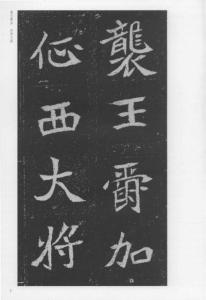 襲王爵加
征西大将